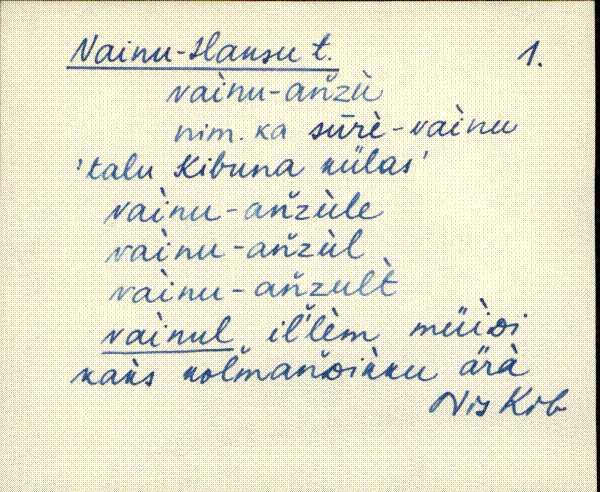 Vainu-Hansu t. 1.
vaìnu-an̆zù
nim. ka sūrè-vaìnu
'talu Kibuna külas'
vaìnu-an̆zùle
vaìnu-an̆zùl
vaìnu-an̆zult̀
vaìnul il̆'lèm müìᴅi
kak̀s kol̆man̆ᴅik̀ku ärà
Nis Kib